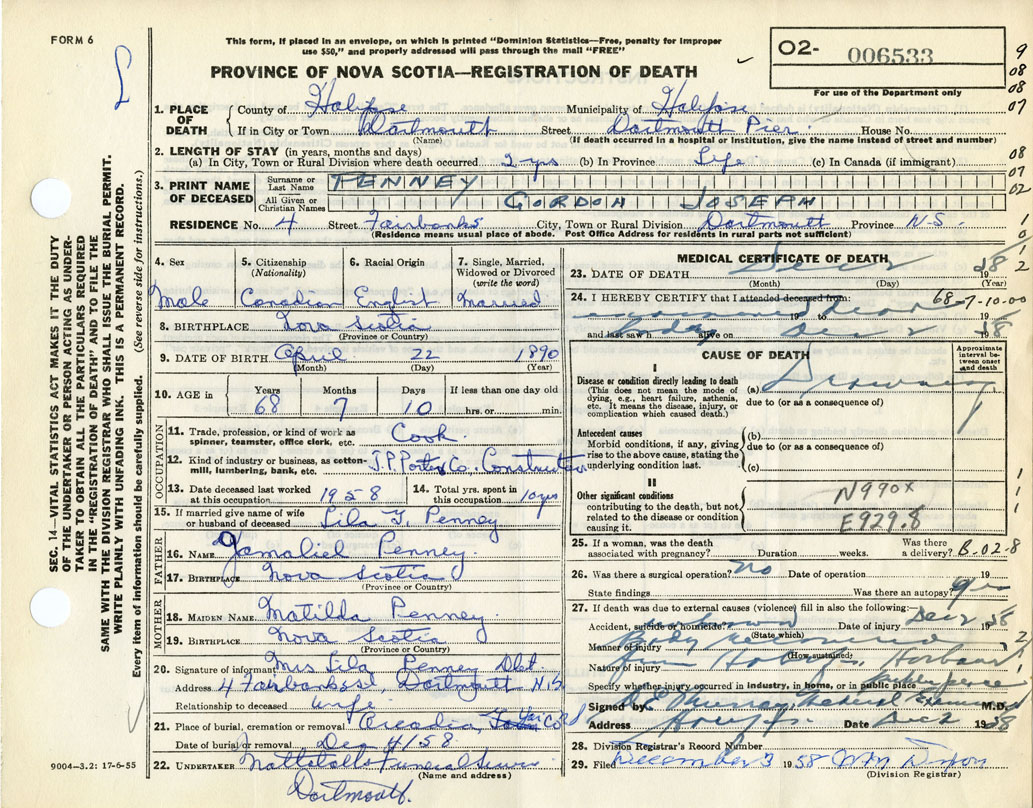 FORM 6
This form, if placed in an envelope, on which is printed "Dominion Statistics—Free, penalty for improper
use $50," and properly addressed will pass through the mail "FREE"
O2- 006533
For use of the Department only
PROVINCE OF NOVA SCOTIA—REGISTRATION OF DEATH
9
08
08
07
1. PLACE OF DEATH
County of Halifax Municipality of Halifax
If in City or Town Dartmouth Street Dartmouth Pier. House No.
(Name) (If death occurred in a hospital or institution, give the name instead of street and number)
2. LENGTH OF STAY (in years, months and days)
(a) In City, Town or Rural Division where death occurred 2 yrs (b) In Province Life (c) In Canada (if immigrant)
08
07
02
3. PRINT NAME OF DECEASED
Surname or Last Name PENNEY
All Given or Christian Names GORDON JOSEPH
RESIDENCE No. 4 Street Fairbanks City, Town or Rural Division Dartmouth Province N-S.
(Residence means usual place of abode. Post Office Address for residents in rural parts not sufficient)
1
0
2
SEC. 14—VITAL STATISTICS ACT MAKES IT THE DUTY
OF THE UNDERTAKER OR PERSON ACTING AS UNDER-
TAKER TO OBTAIN ALL THE PARTICULARS REQUIRED
IN THE "REGISTRATION OF DEATH" AND TO FILE THE
SAME WITH THE DIVISION REGISTRAR WHO SHALL ISSUE THE BURIAL PERMIT.
WRITE PLAINLY WITH UNFADING INK. THIS IS A PERMANENT RECORD.
Every item of information should be carefully supplied. (See reverse side for instructions.)
4. Sex 5. Citizenship (Nationality) 6. Racial Origin 7. Single, Married, Widowed or Divorced (write the word)
Male Canadian English Married
8. BIRTHPLACE Nova Scotia
(Province or Country)
9. DATE OF BIRTH April 22 1890
(Month) (Day) (Year)
10. AGE in Years Months Days If less than one day old
68 7 10 hrs. or min.
OCCUPATION
11. Trade, profession, or kind of work as spinner, teamster, office clerk, etc. Cook.
12. Kind of industry or business, as cotton-mill, lumbering, bank, etc. J.P. Porter Co. Construction
13. Date deceased last worked at this occupation 1958 14. Total yrs. spent in this occupation 10 yrs
15. If married give name of wife or husband of deceased Lila Penney
FATHER
16. NAME Gamaliel Penney.
17. BIRTHPLACE Nova Scotia
(Province or Country)
MOTHER
18. MAIDEN NAME Matilda Penney
19. BIRTHPLACE Nova Scotia
(Province or Country)
20. Signature of informant Mrs Lila Penney
Address 4 Fairbanks, Dartmouth N.S.
Relationship to deceased wife
21. Place of burial, cremation or removal Arcadia,
Date of burial or removal Dec 4/58
22. UNDERTAKER Funeral
(Name and address)
Dartmouth.
9004—3.2: 17-6-55
MEDICAL CERTIFICATE OF DEATH
23. DATE OF DEATH Dec 2 1958
(Month) (Day) (Year)
24. I HEREBY CERTIFY that I attended deceased from: 68-7-10-00
19 to 19
and last saw h body alive on Dec 2 1958
CAUSE OF DEATH
Approximate interval between onset and death
I
Disease or condition directly leading to death (a) Drowning
(This does not mean the mode of dying, e.g., heart failure, asthenia, etc. It means the disease, injury, or complication which caused death.)
due to (or as a consequence of)
Antecedent causes
Morbid conditions, if any, giving rise to the above cause, stating the underlying condition last.
(b)
due to (or as a consequence of)
(c)
II
Other significant conditions contributing to the death, but not related to the disease or condition causing it.
N990X
E929.8
1
1
1
25. If a woman, was the death associated with pregnancy? Duration weeks. Was there a delivery? B-02-8
26. Was there a surgical operation? no Date of operation 19
State findings Was there an autopsy? yes
27. If death was due to external causes (violence) fill in also the following:
Accident, suicide or homicide? Date of injury Dec 2 1958
(State which)
Manner of injury Body
(How sustained)
Nature of injury Harbour
Specify whether injury occurred in industry, in home, or in public place
Signed by Murray Medical Examiner M.D.
Address Date Dec 2 1958
28. Division Registrar's Record Number
29. Filed December 3 1958
(Division Registrar)